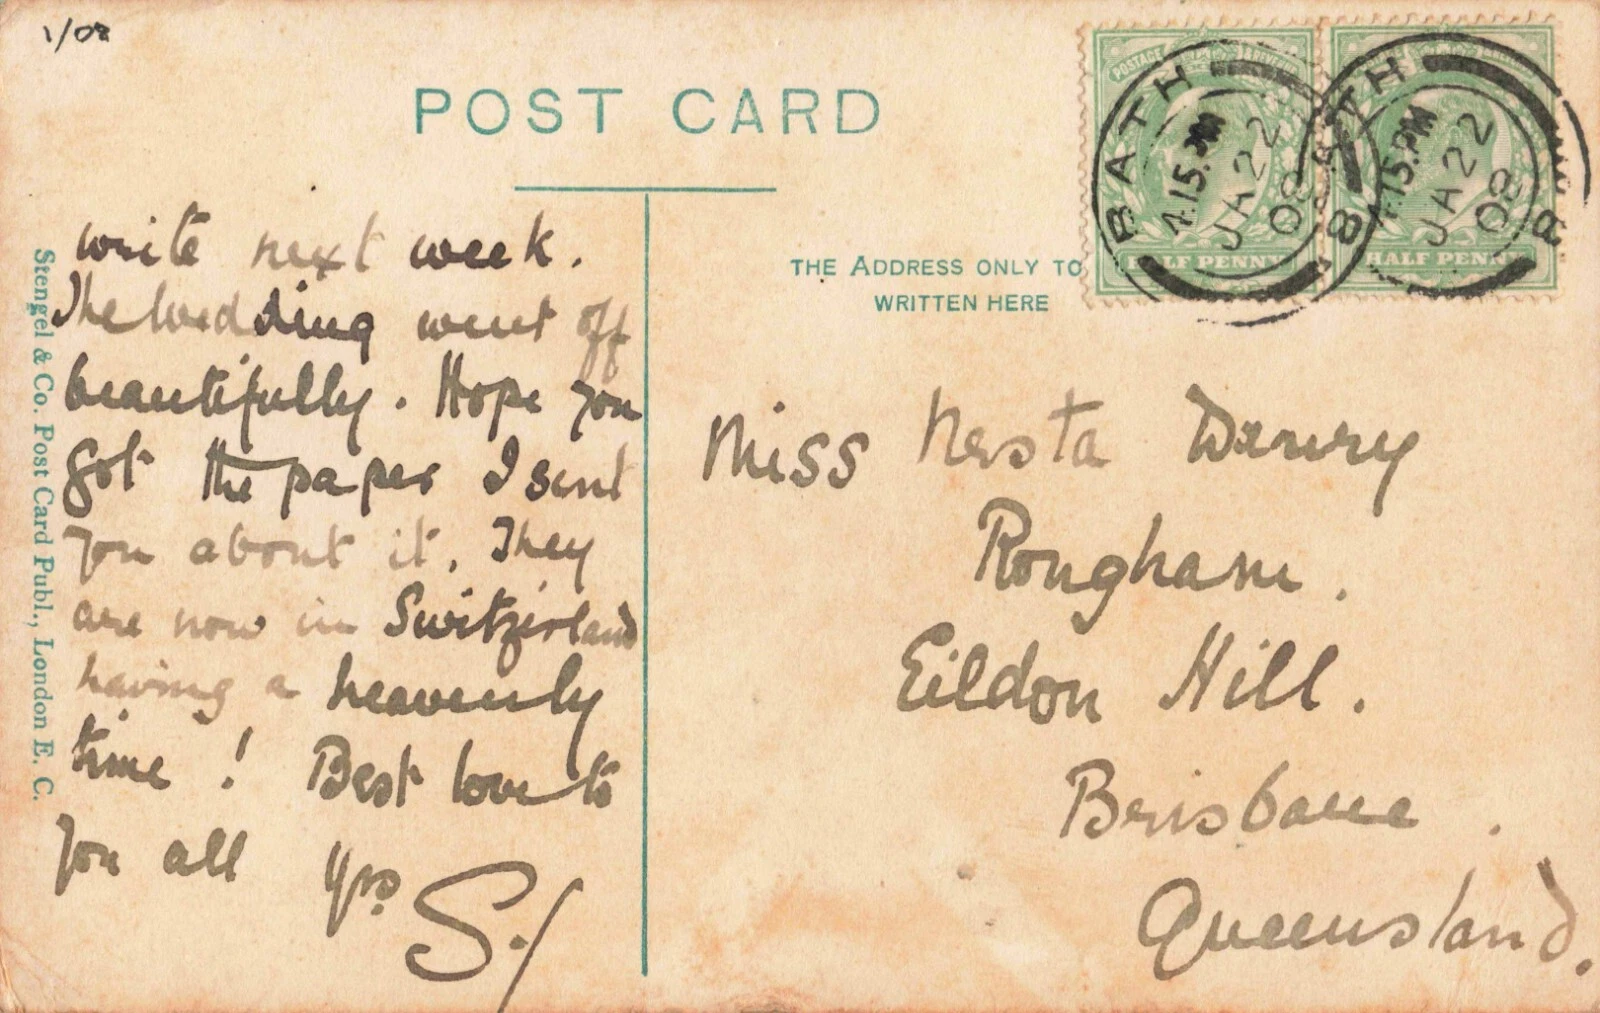 1/08
POST CARD
THE ADDRESS ONLY TO
WRITTEN HERE
POSTAGE
HALF PENNY
HALF PENNY
BATH
4.15.PM
JA 22
08
BATH
4.15.PM
JA 22
08
write next week.
The wedding went off
beautifully. Hope you
got the paper I sent
you about it. They
are now in Switzerland
having a heavenly
time! Best love to
you all yrs
S./
Stengel & Co. Post Card Publ., London E. C.
Miss Nesta Drury
Rougham.
Eildon Hill.
Brisbane.
Queensland.